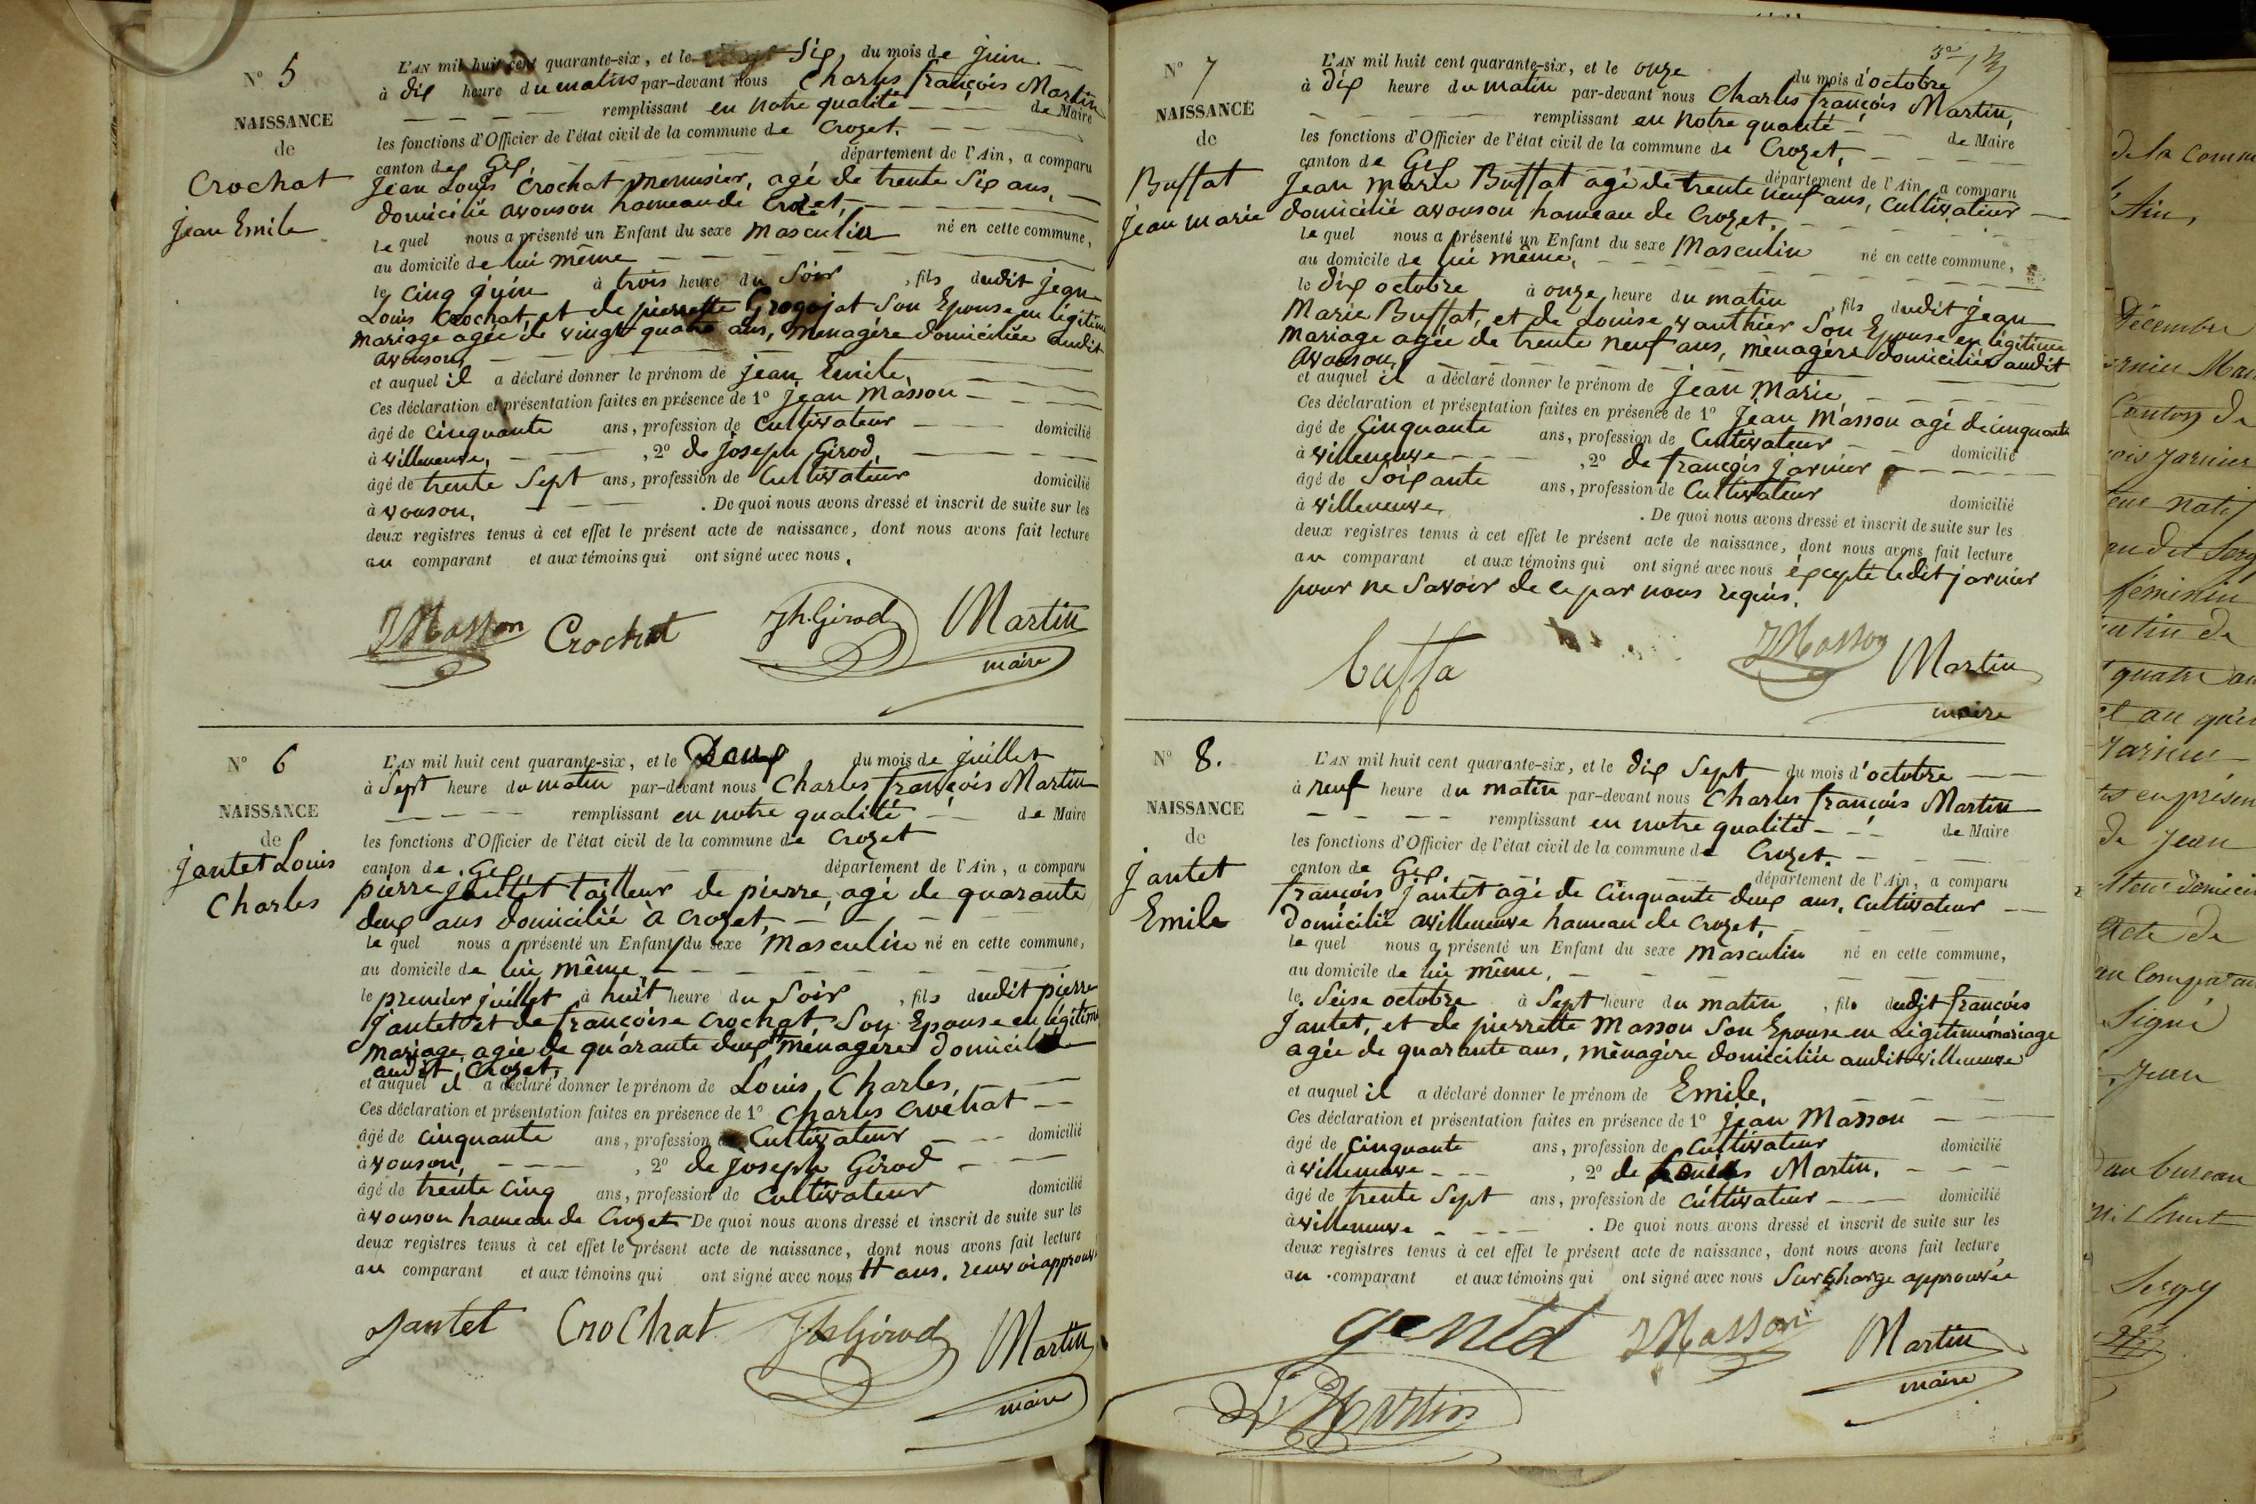 N° 5
NAISSANCE
de
Crochat
Jean Emile
L'AN mil huit cent quarante-six, et le Six du mois de juin
à dix heure du matin par-devant nous Charles françois Martin
remplissant en notre qualité de Maire
les fonctions d'Officier de l'état civil de la commune de Crozet,
canton de Gex, département de l'Ain, a comparu
Jean Louis Crochat menuisier, agé de trente Six ans,
domicilié avouson hameau de Crozet,
le quel nous a présenté un Enfant du sexe Masculin né en cette commune,
au domicile de lui même
le cinq juin à trois heure du Soir, fils dudit jean
Louis Crochat, et de pierrette Grosjat Son Epouse en légitime
mariage agée de vingt quatre ans, menagère domiciliée audit
avouson,
et auquel il a déclaré donner le prénom de jean Emile,
Ces déclaration et présentation faites en présence de 1° Jean Masson
âgé de cinquante ans, profession de Cultivateur domicilié
à villeneuve, , 2° de joseph Girod,
âgé de trente Sept ans, profession de Cultivateur domicilié
à vouson, . De quoi nous avons dressé et inscrit de suite sur les
deux registres tenus à cet effet le présent acte de naissance, dont nous avons fait lecture
au comparant et aux témoins qui ont signé avec nous.
JMasson Crochat Jh. Girod Martin
maire
N° 6
NAISSANCE
de
jantet Louis
Charles
L'AN mil huit cent quarante-six, et le Deux du mois de juillet
à Sept heure du matin par-devant nous Charles françois Martin
remplissant en notre qualité de Maire
les fonctions d'Officier de l'état civil de la commune de Crozet
canton de Gex, département de l'Ain, a comparu
pierre tailleur de pierre, agé de quarante
deux ans domicilié à Crozet,
le quel nous a présenté un Enfant du sexe Masculin né en cette commune,
au domicile de lui même,
le premier juillet à huit heure du Soir, fils dudit pierre
Jantet et de françoise Crochat Son Epouse en légitime
mariage, agée de quarante deux tt ménagère domiciliée
audit Crozet,
et auquel il a déclaré donner le prénom de Louis, Charles,
Ces déclaration et présentation faites en présence de 1° Charles Crochat
âgé de cinquante ans, profession de Cultivateur domicilié
à vouson, , 2° de joseph Girod
âgé de trente cinq ans, profession de Cultivateur domicilié
à vouson hameau de Crozet De quoi nous avons dressé et inscrit de suite sur les
deux registres tenus à cet effet le présent acte de naissance, dont nous avons fait lecture
au comparant et aux témoins qui ont signé avec nous tt ans. renvoi approuvé
Jantet CroChat Jh Girod Martin
maire
N° 7
NAISSANCE
de
Buffat
jean marie
L'AN mil huit cent quarante-six, et le onze du mois d'octobre
à dix heure du matin par-devant nous Charles françois Martin,
remplissant en notre qualité de Maire
les fonctions d'Officier de l'état civil de la commune de Crozet,
canton de Gex département de l'Ain, a comparu
Jean marie Buffat agé de trente neuf ans, Cultivateur
domicilié avouson hameau de Crozet,
le quel nous a présenté un Enfant du sexe Masculin né en cette commune,
au domicile de lui même,
le dix octobre à onze heure du matin, fils dudit jean
Marie Buffat, et de Louise vauthier Son Epouse en légitime
mariage agée de trente neuf ans, ménagère domiciliée audit
avouson,
et auquel il a déclaré donner le prénom de jean Marie
Ces déclaration et présentation faites en présence de 1° Jean Masson agé de cinquante
âgé de cinquante ans, profession de Cultivateur domicilié
à villeneuve , 2° de françois jarnier
âgé de Soixante ans, profession de Cultivateur domicilié
à villeneuve . De quoi nous avons dressé et inscrit de suite sur les
deux registres tenus à cet effet le présent acte de naissance, dont nous avons fait lecture
au comparant et aux témoins qui ont signé avec nous éxcepté ledit jarnier
pour ne Savoir de ce par nous requis.
buffa JMasson Martin
maire
N° 8.
NAISSANCE
de
jantet
Emile
L'AN mil huit cent quarante-six, et le dix Sept du mois d'octobre
à neuf heure du matin par-devant nous Charles françois Martin
remplissant en notre qualité de Maire
les fonctions d'Officier de l'état civil de la commune de Crozet.
canton de Gex, département de l'Ain, a comparu
françois jantet agé de Cinquante deux ans, Cultivateur
domicilié avilleneuve hameau de Crozet,
le quel nous a présenté un Enfant du sexe Masculin né en cette commune,
au domicile de lui même,
le Seise octobre à Sept heure du matin, fils dudit françois
Jantet, et de pierrette Masson Son Epouse en Légitime mariage
agée de quarante ans, ménagère domiciliée audit villeneuve
et auquel il a déclaré donner le prénom de Emile,
Ces déclaration et présentation faites en présence de 1° jean Masson
âgé de Cinquante ans, profession de Cultivateur domicilié
à villeneuve , 2° de Louis Martin,
âgé de trente Sept ans, profession de Cultivateur domicilié
à villeneuve . De quoi nous avons dressé et inscrit de suite sur les
deux registres tenus à cet effet le présent acte de naissance, dont nous avons fait lecture
au comparant et aux témoins qui ont signé avec nous Surcharge approuvée
JMasson Martin
maire
Ls Martin
de la Commu
Ain,
Décembre
Canton de
jarnier
natif
féminin
matin de
quatre an
et au qu'el
en présen
de jean
Acte de
au Compa
Signé
Jean
au bureau
Sergy